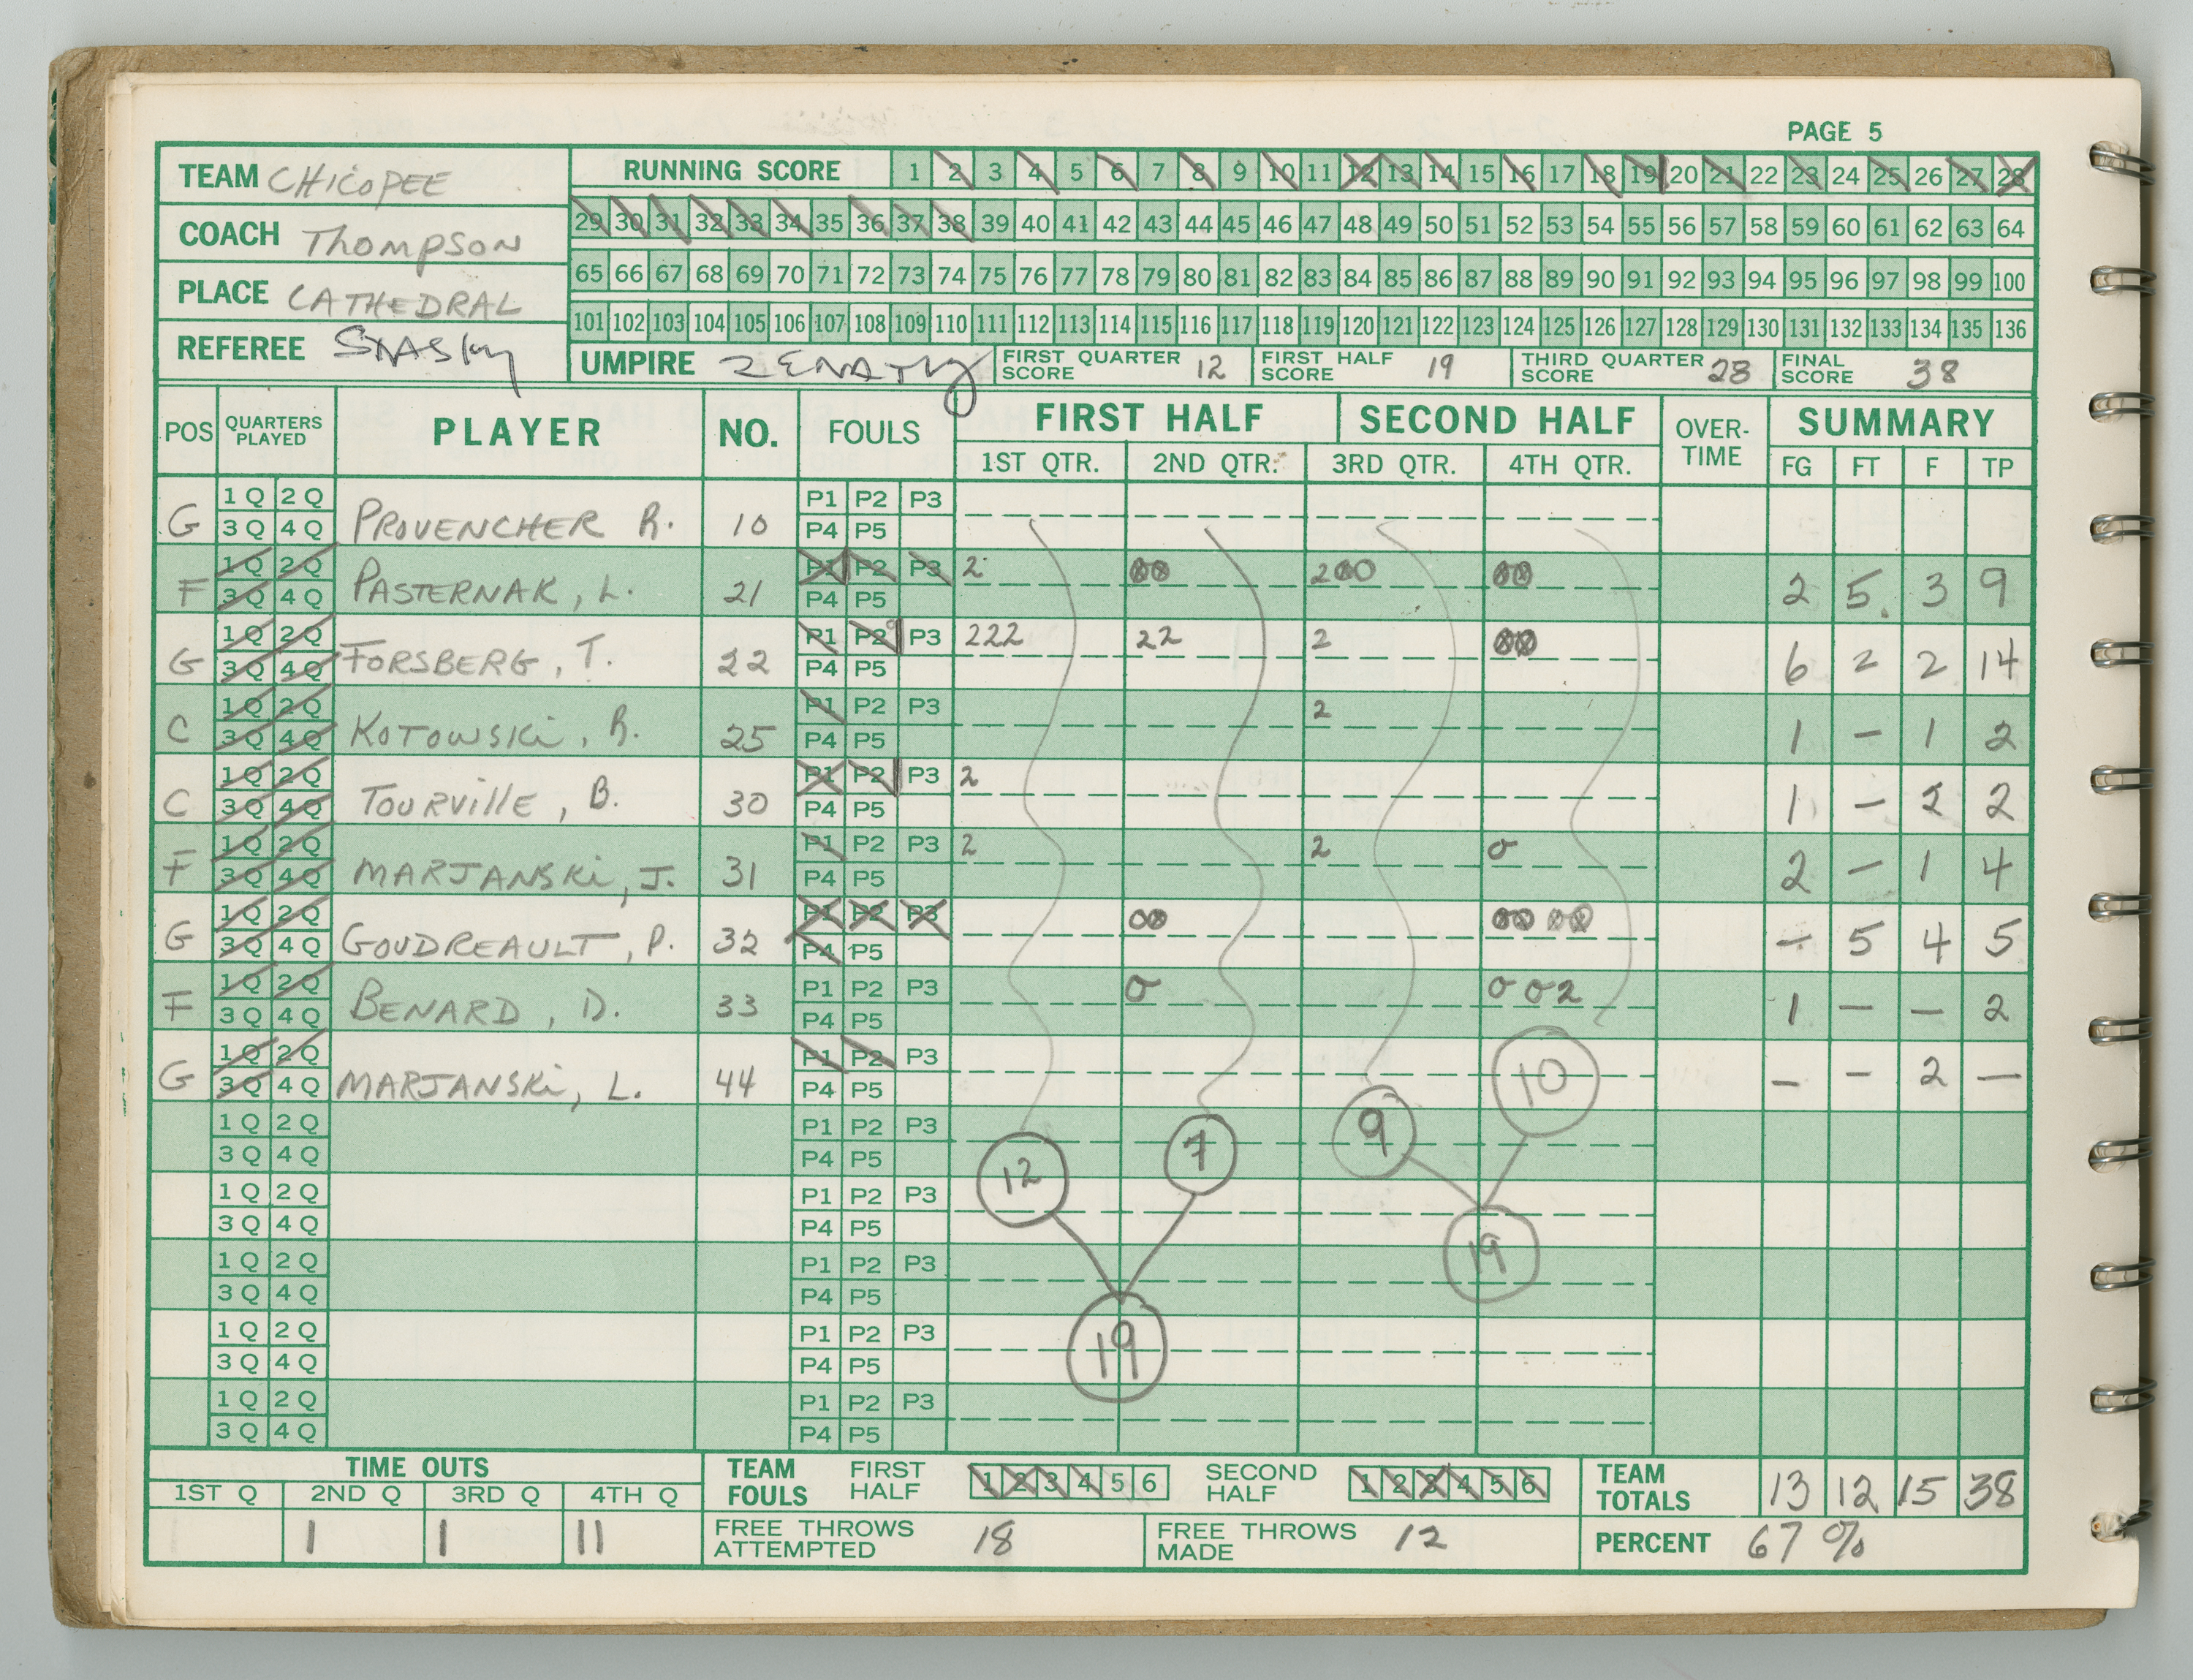 PAGE 5
TEAM CHICOPEE
COACH Thompson
PLACE CATHEDRAL
REFEREE
RUNNING SCORE 1 2 3 4 5 6 7 8 9 10 11 12 13 14 15 16 17 18 19 20 21 22 23 24 25 26 27 28
29 30 31 32 33 34 35 36 37 38 39 40 41 42 43 44 45 46 47 48 49 50 51 52 53 54 55 56 57 58 59 60 61 62 63 64
65 66 67 68 69 70 71 72 73 74 75 76 77 78 79 80 81 82 83 84 85 86 87 88 89 90 91 92 93 94 95 96 97 98 99 100
101 102 103 104 105 106 107 108 109 110 111 112 113 114 115 116 117 118 119 120 121 122 123 124 125 126 127 128 129 130 131 132 133 134 135 136
UMPIRE FIRST QUARTER SCORE 12 FIRST HALF SCORE 19 THIRD QUARTER SCORE 28 FINAL SCORE 38
POS QUARTERS PLAYED PLAYER NO. FOULS FIRST HALF SECOND HALF OVER-TIME SUMMARY
1ST QTR. 2ND QTR. 3RD QTR. 4TH QTR. FG FT F TP
1Q 2Q P1 P2 P3
G 3Q 4Q PROVENCHER R. 10 P4 P5
1Q 2Q P1 P2 P3 2 00 200 00
F 3Q 4Q PASTERNAK, L. 21 P4 P5 2 5. 3 9
1Q 2Q P1 P2 P3 222 22 2 00
G 3Q 4Q FORSBERG, T. 22 P4 P5 6 2 2 14
1Q 2Q P1 P2 P3 2
C 3Q 4Q KOTOWSKi, R. 25 P4 P5 1 - 1 2
1Q 2Q P1 P2 P3 2
C 3Q 4Q TOURVillE, B. 30 P4 P5 1 - 2 2
1Q 2Q P1 P2 P3 2 2 0
F 3Q 4Q MARJANSKi, J. 31 P4 P5 2 - 1 4
1Q 2Q P1 P2 P3 00 00 00
G 3Q 4Q GOUDREAULT, P. 32 P4 P5 - 5 4 5
1Q 2Q P1 P2 P3 0 0 02
F 3Q 4Q BENARD, D. 33 P4 P5 1 - - 2
1Q 2Q P1 P2 P3 10
G 3Q 4Q MARJANSKi, L. 44 P4 P5 - - 2 -
1Q 2Q P1 P2 P3 7 9
3Q 4Q P4 P5
1Q 2Q P1 P2 P3 12
3Q 4Q P4 P5
1Q 2Q P1 P2 P3 19
3Q 4Q P4 P5
1Q 2Q P1 P2 P3 19
3Q 4Q P4 P5
1Q 2Q P1 P2 P3
3Q 4Q P4 P5
TIME OUTS
1ST Q 2ND Q 3RD Q 4TH Q
1 1 11
TEAM FOULS FIRST HALF 1 2 3 4 5 6 SECOND HALF 1 2 3 4 5 6
TEAM TOTALS 13 12 15 38
FREE THROWS ATTEMPTED 18 FREE THROWS MADE 12 PERCENT 67 %